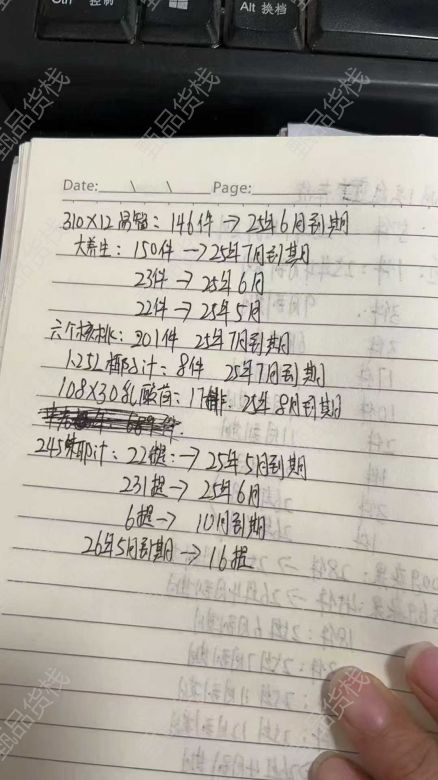 Ctrl 控制
Alt 换档
Date: \ \ Page:
310X12高智: 146件 → 25年6月到期
大养生: 150件 → 25年7月到期
23件 → 25年6月
22件 → 25年5月
六个核桃: 201件 25年7月到期
1.25L椰汁: 8件 25年7月到期
108X30乳酸菌: 17排 25年8月到期
245 椰汁: 22提: → 25年5月到期
231提 → 25年6月
6提 → 10月到期
26年5月到期 → 16提
甄品货栈